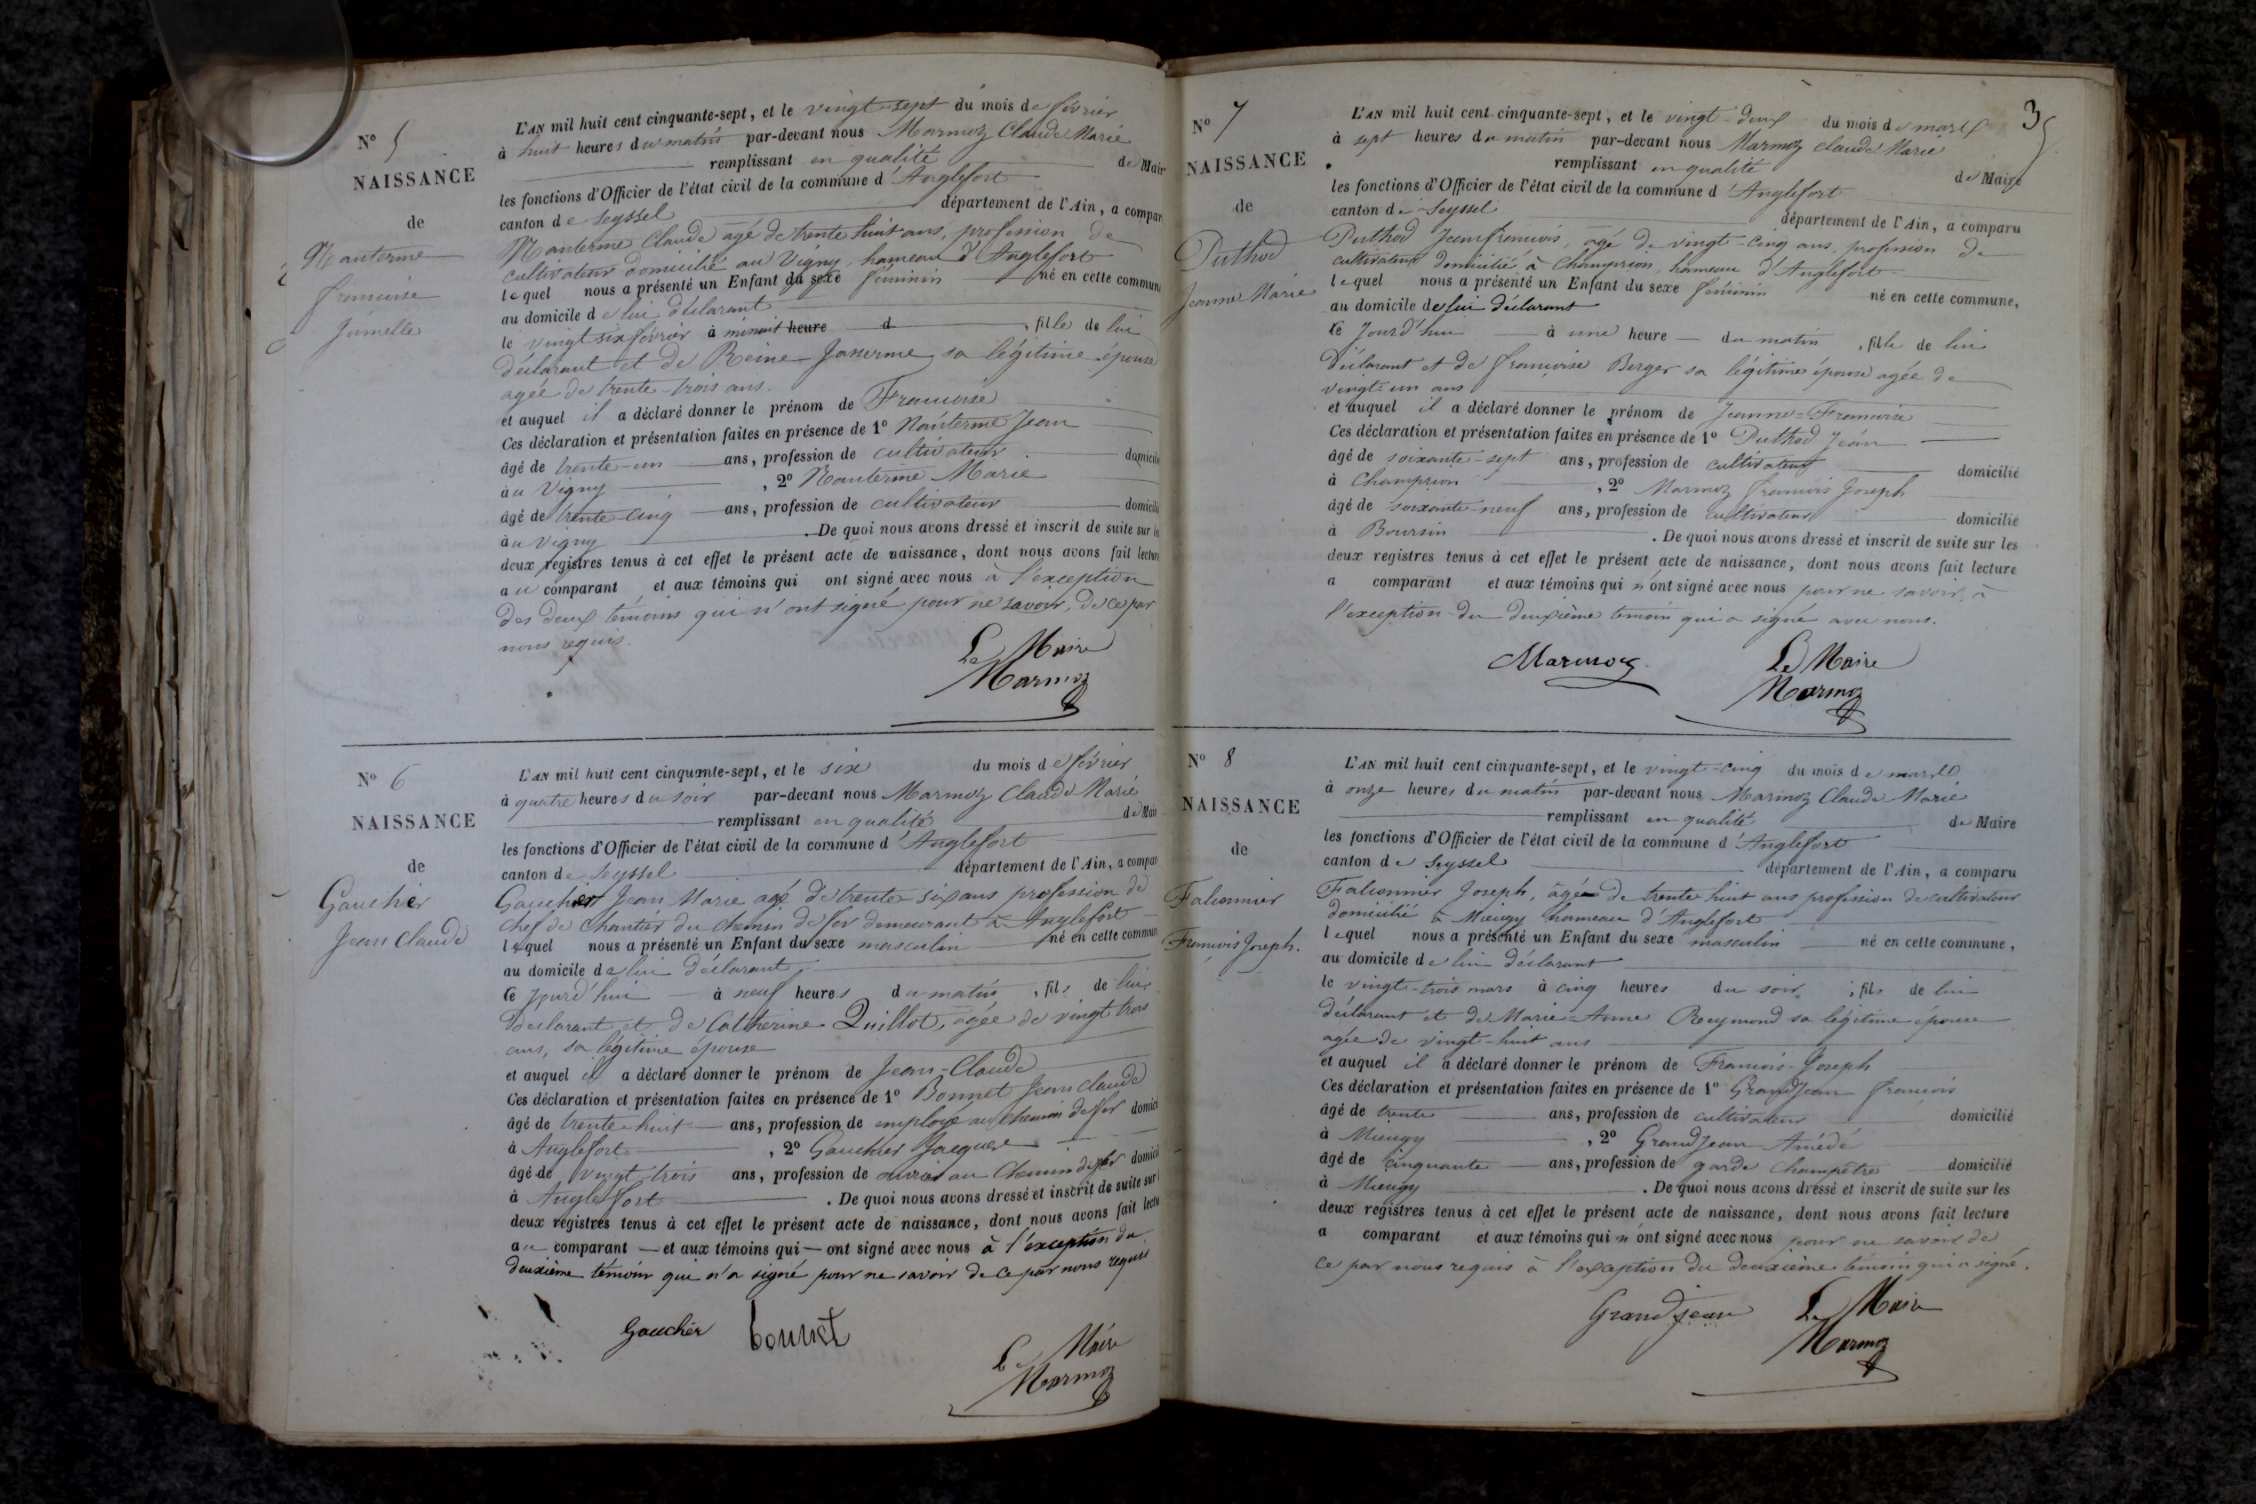 N° 5
NAISSANCE
de
Nanterme
françoise
Jumelle
L'AN mil huit cent cinquante-sept, et le vingt-sept du mois de février
à huit heures du matin par-devant nous Marmoz Claude Marie
remplissant en qualité de Mair
les fonctions d'Officier de l'état civil de la commune d'Anglefort
canton de Seyssel département de l'Ain, a compar
Nanterme Claude agé de trente huit ans, profession de
cultivateur domicilié au Vigny, hameau d'Anglefort
lequel nous a présenté un Enfant du sexe féminin né en cette commune
au domicile de lui déclarant
le vingt six février à minuit heure d , fille de lui
déclarant et de Reine Janerme sa légitime épouse
agée de trente trois ans.
et auquel il a déclaré donner le prénom de Françoise
Ces déclaration et présentation faites en présence de 1° Nanterme Jean
âgé de trente-un ans, profession de cultivateur domicilié
au Vigny , 2° Nanterme Marie
âgé de trente-cinq ans, profession de cultivateur domicilié
au Vigny . De quoi nous avons dressé et inscrit de suite sur les
deux registres tenus à cet effet le présent acte de naissance, dont nous avons fait lecture
au comparant et aux témoins qui ont signé avec nous à l'exception
des deux témoins qui n'ont signé pour ne savoir, de ce par
nous requis.
Le Maire
Marmoz
N° 6
NAISSANCE
de
Gaucher
Jean Claude
L'AN mil huit cent cinquante-sept, et le six du mois de février
à quatre heures du soir par-devant nous Marmoz Claude Marie
remplissant en qualité de Mair
les fonctions d'Officier de l'état civil de la commune d'Anglefort
canton de Seyssel département de l'Ain, a compar
Gaucher Jean Marie agé de trente six ans profession de
chef de chantier du chemin de fer demeurant à Anglefort
lequel nous a présenté un Enfant du sexe masculin né en cette commun
au domicile de lui déclarant
ce jourd'hui à neuf heures du matin , fils de lui
déclarant et de Catherine Quillot, agée de vingt trois
ans, sa légitime épouse
et auquel il a déclaré donner le prénom de Jean-Claude
Ces déclaration et présentation faites en présence de 1° Bonnet Jean claude
âgé de trente huit ans, profession de employé au chemin de fer domici
à Anglefort , 2° Gaucher Jacques
âgé de vingt trois ans, profession de ouvrier au Chemin de fer domici
à Anglefort . De quoi nous avons dressé et inscrit de suite sur l
deux registres tenus à cet effet le présent acte de naissance, dont nous avons fait lectu
au comparant et aux témoins qui ont signé avec nous à l'exception du
deuxième témoin qui n'a signé pour ne savoir de ce par nous requis
Gaucher bonnet
Le Maire
Marmoz
35
N° 7
NAISSANCE
de
Puthod
Jeanne Marie
L'AN mil huit cent cinquante-sept, et le vingt-deux du mois de mars
à sept heures du matin par-devant nous Marmoz Claude Marie
remplissant en qualité de Maire
les fonctions d'Officier de l'état civil de la commune d'Anglefort
canton de Seyssel département de l'Ain, a comparu
Puthod Jean françois, âgé de vingt-cinq ans, profession de
cultivateur domicilié à Champrion, hameau d'Anglefort
lequel nous a présenté un Enfant du sexe féminin né en cette commune,
au domicile de lui déclarant
ce Jourd'hui à une heure du matin , fille de lui
déclarant et de françoise Berger sa légitime épouse agée de
vingt-un ans
et auquel il a déclaré donner le prénom de Jeanne-Françoise
Ces déclaration et présentation faites en présence de 1° Puthod Jean
âgé de soixante-sept ans, profession de cultivateur domicilié
à Champrion , 2° Marmoz françois Joseph
âgé de soixante-neuf ans, profession de cultivateur domicilié
à Boursin . De quoi nous avons dressé et inscrit de suite sur les
deux registres tenus à cet effet le présent acte de naissance, dont nous avons fait lecture
a comparant et aux témoins qui n'ont signé avec nous pour ne savoir, à
l'exception du deuxième témoin qui a signé avec nous.
Marmoz Le Maire
Marmoz
N° 8
NAISSANCE
de
Falconnier
François Joseph.
L'AN mil huit cent cinquante-sept, et le vingt-cinq du mois de mars
à onze heures du matin par-devant nous Marmoz Claude Marie
remplissant en qualité de Maire
les fonctions d'Officier de l'état civil de la commune d'Anglefort
canton de Seyssel département de l'Ain, a comparu
Falconnier Joseph, âgé de trente huit ans profession de cultivateur
domicilié à Mieugy hameau d'Anglefort
lequel nous a présenté un Enfant du sexe masculin né en cette commune,
au domicile de lui déclarant
le vingt-trois mars à cinq heures du soir , fils de lui
déclarant et de Marie-Anne Reymond sa légitime épouse
agée de vingt-huit ans
et auquel il a déclaré donner le prénom de François-Joseph
Ces déclaration et présentation faites en présence de 1° GrandJean françois
âgé de trente ans, profession de cultivateur domicilié
à Mieugy , 2° GrandJean Amédé
âgé de cinquante ans, profession de garde champêtre domicilié
à Mieugy . De quoi nous avons dressé et inscrit de suite sur les
deux registres tenus à cet effet le présent acte de naissance, dont nous avons fait lecture
a comparant et aux témoins qui n'ont signé avec nous pour ne savoir de
ce par nous requis à l'exception du deuxième témoin qui a signé.
Grandjean Le Maire
Marmoz